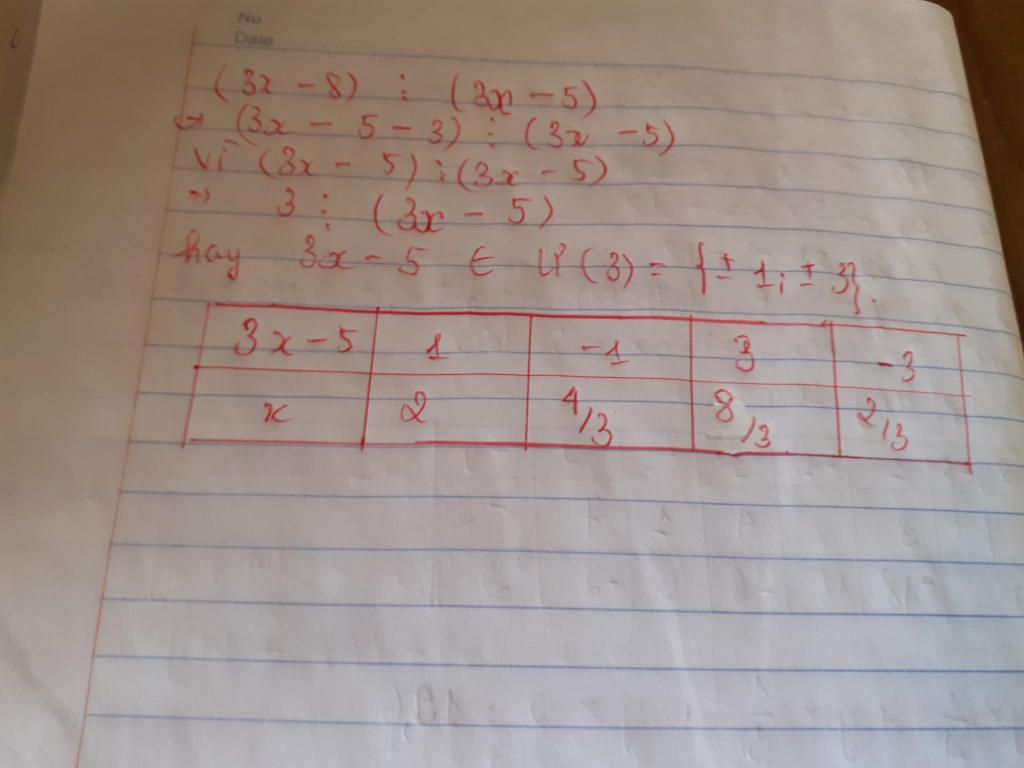 No.
Date
(3x - 8) ⋮ (3x - 5)
↔ (3x - 5 - 3) ⋮ (3x - 5)
vì (3x - 5) ⋮ (3x - 5)
⇒ 3 ⋮ (3x - 5)
hay 3x - 5 ∈ Ư(3) = {± 1; ± 3}.
3x - 5 1 -1 3 -3
x 2 4/3 8/3 2/3